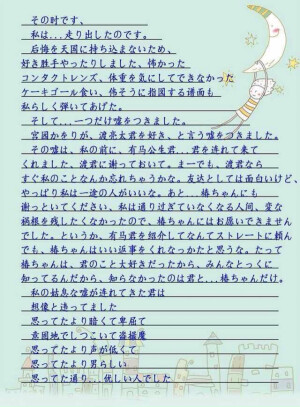 その时です、
私は...走り出したのです。
后悔を天国に持ち込まないため、
好き勝手やったりしました、怖かった
コンタクトレンズ、体重を気にしてできなかった
ケーキゴール食い、偉そうに指図する谱面も
私らしく弾いてあげた。
そして...一つだけ嘘をつきました。
宮园かをりが、渡亮太君を好き、と言う嘘をつきました。
その嘘は、私の前に、有马公生君...君を连れて来て
くれました、渡君に谢っておいて。まーでも、渡君なら
すぐ私のことなんか忘れちゃうかな。友达としては面白いけど、
やっぱり私は一途の人がいいな。あと...椿ちゃんにも
谢っといてください、私は通り过ぎていなくなる人间、変な
祸根を残したくなかったので、椿ちゃんにはお愿いできません
でした。というか、有马君を绍介してなんてストレートに頼ん
でも、椿ちゃんはいい返事をくれなっかたと思うな。だって
椿ちゃんは、君のこと大好きだったから、みんなとっくに
知ってるんだから、知らなかったのは君と...椿ちゃんだけ。
私の姑息な嘘が连れてきた君は
想像と违ってました
思ってたより暗くて卑屈で
意固地でしつこいて盗撮魔
思ってたより声が低くて
思ってたより男らしい
思ってた通り...优しい人でした